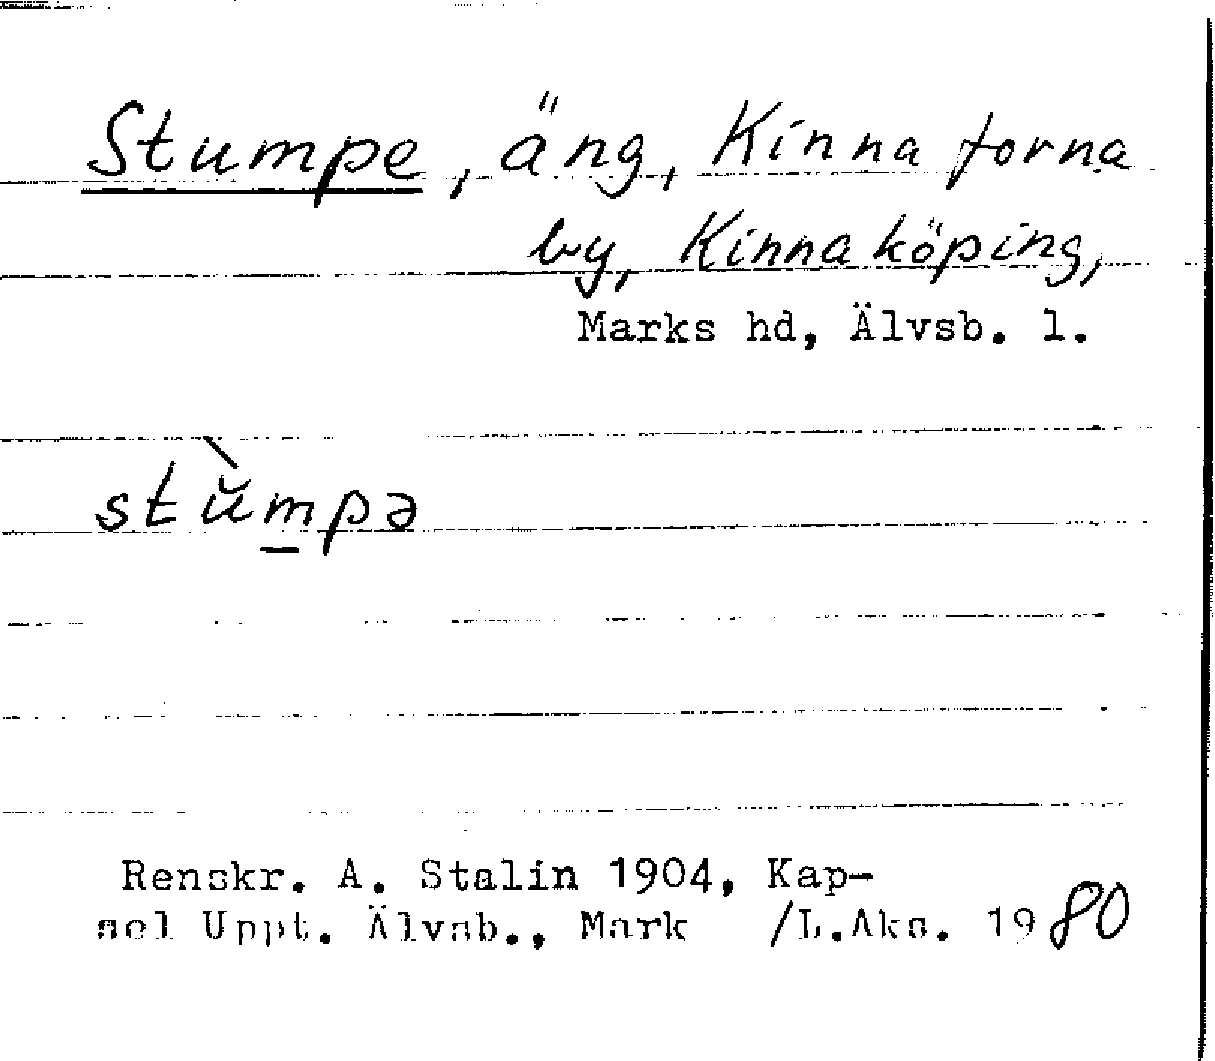 Stumpe, äng, Kinna forna
by, Kinna köping,
Marks hd, Älvsb. l.
stŭ̀m̲pə
Renskr. A. Stalin 1904, Kap-
sel Uppt. Älvsb., Mark /L.Aks. 1980